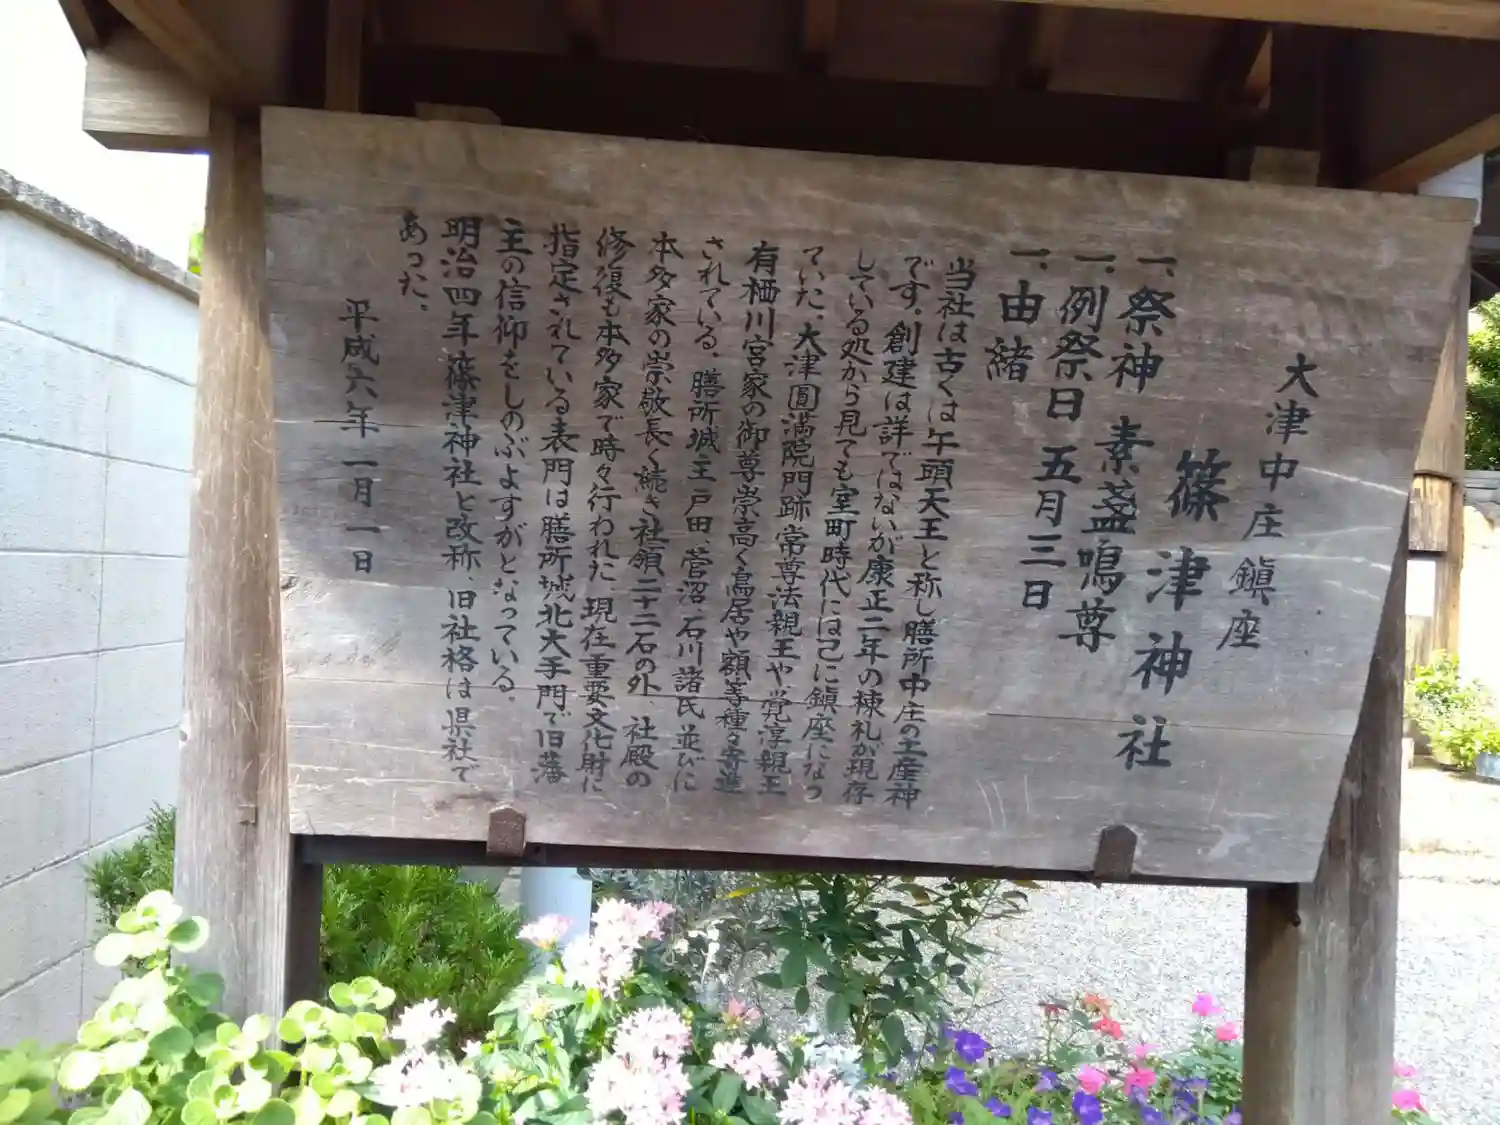 大津中庄鎮座
篠津神社
一、祭神 素盞鳴尊
一、例祭日 五月三日
一、由緒
当社は古くは午頭天王と称し膳所中庄の土産神
です。創建は詳ではないが康正二年の棟札が現存
している処から見ても室町時代には已に鎮座になっ
ていた。大津圓満院門跡常尊法親王や覚淳親王
有栖川宮家の御尊崇高く鳥居や額等種々寄進
されている。膳所城主戸田、菅沼、石川諸氏並びに
本多家の崇敬長く続き社領二十二石の外、社殿の
修復も本多家で時々行われた、現在重要文化財に
指定されている表門は膳所城北大手門で旧藩
主の信仰をしのぶよすがとなっている。
明治四年篠津神社と改称、旧社格は県社で
あった。
平成六年一月一日